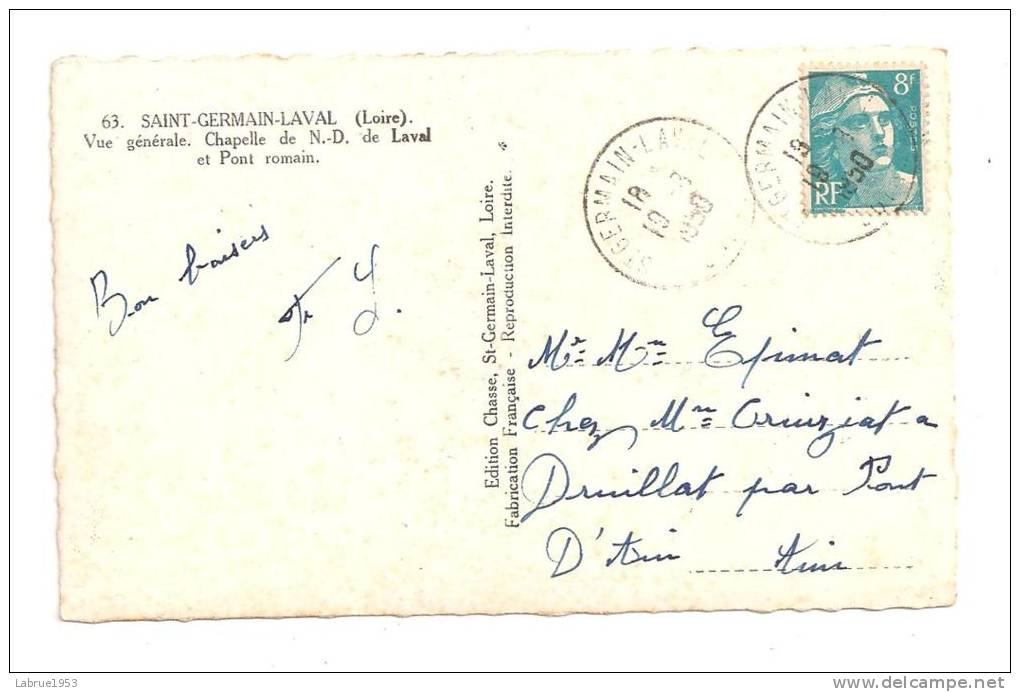 63. SAINT-GERMAIN-LAVAL (Loire).
Vue générale. Chapelle de N.-D. de Laval
et Pont romain.
Bon baisers
Edition Chasse, St-Germain-Laval, Loire.
Fabrication Française - Reproduction Interdite.
ST GERMAIN-LAVAL
18
19 - 7
1950
8F
POSTES
RF
Mr Mme Epinat
Chez Mme Oriuziat a
Druillat par Pont
D'Ain Ain
Labrue1953
www.delcampe.net